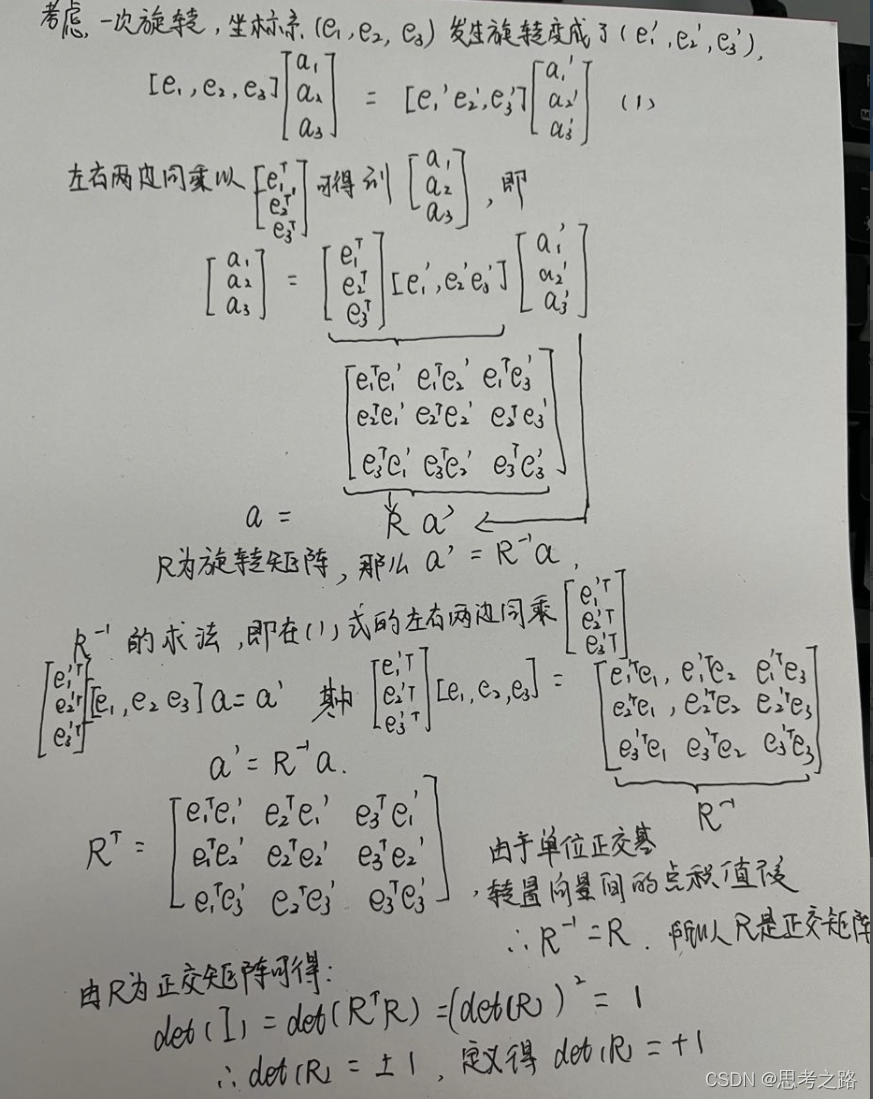 考虑,一次旋转,坐标系(e₁,e₂,e₃)发生旋转变成了(e₁',e₂',e₃'),
[e₁,e₂,e₃][a₁ a₂ a₃] = [e₁'e₂',e₃'][a₁' a₂' a₃'] (1)
左右两边同乘以[e₁ᵀ e₂ᵀ e₃ᵀ]可得到[a₁ a₂ a₃],即
[a₁ a₂ a₃] = [e₁ᵀ e₂ᵀ e₃ᵀ][e₁',e₂'e₃'][a₁' a₂' a₃']
[e₁ᵀe₁' e₁ᵀe₂' e₁ᵀe₃'
e₂ᵀe₁' e₂ᵀe₂' e₂ᵀe₃'
e₃ᵀe₁' e₃ᵀe₂' e₃ᵀe₃']
a = R a'
R为旋转矩阵,那么 a' = R⁻¹a,
R⁻¹的求法,即在(1)式的左右两边同乘[e₁'ᵀ e₂'ᵀ e₃'ᵀ]
[e₁'ᵀ e₂'ᵀ e₃'ᵀ][e₁,e₂ e₃]a=a' 其中 [e₁'ᵀ e₂'ᵀ e₃'ᵀ][e₁,e₂,e₃] = [e₁'ᵀe₁, e₁'ᵀe₂ e₁'ᵀe₃
e₂'ᵀe₁, e₂'ᵀe₂ e₂'ᵀe₃
e₃'ᵀe₁ e₃'ᵀe₂ e₃'ᵀe₃]
a' = R⁻¹a.
R⁻¹
Rᵀ = [e₁ᵀe₁' e₂ᵀe₁' e₃ᵀe₁'
e₁ᵀe₂' e₂ᵀe₂' e₃ᵀe₂'
e₁ᵀe₃' e₂ᵀe₃' e₃ᵀe₃']
由于单位正交基
,转置向量间的点积值不变
∴ R⁻¹=R. 所以R是正交矩阵
由R为正交矩阵可得:
det(I) = det(RᵀR) =(det(R))² = 1
∴ det(R) = ±1,定义得 det(R) = +1
CSDN @思考之路